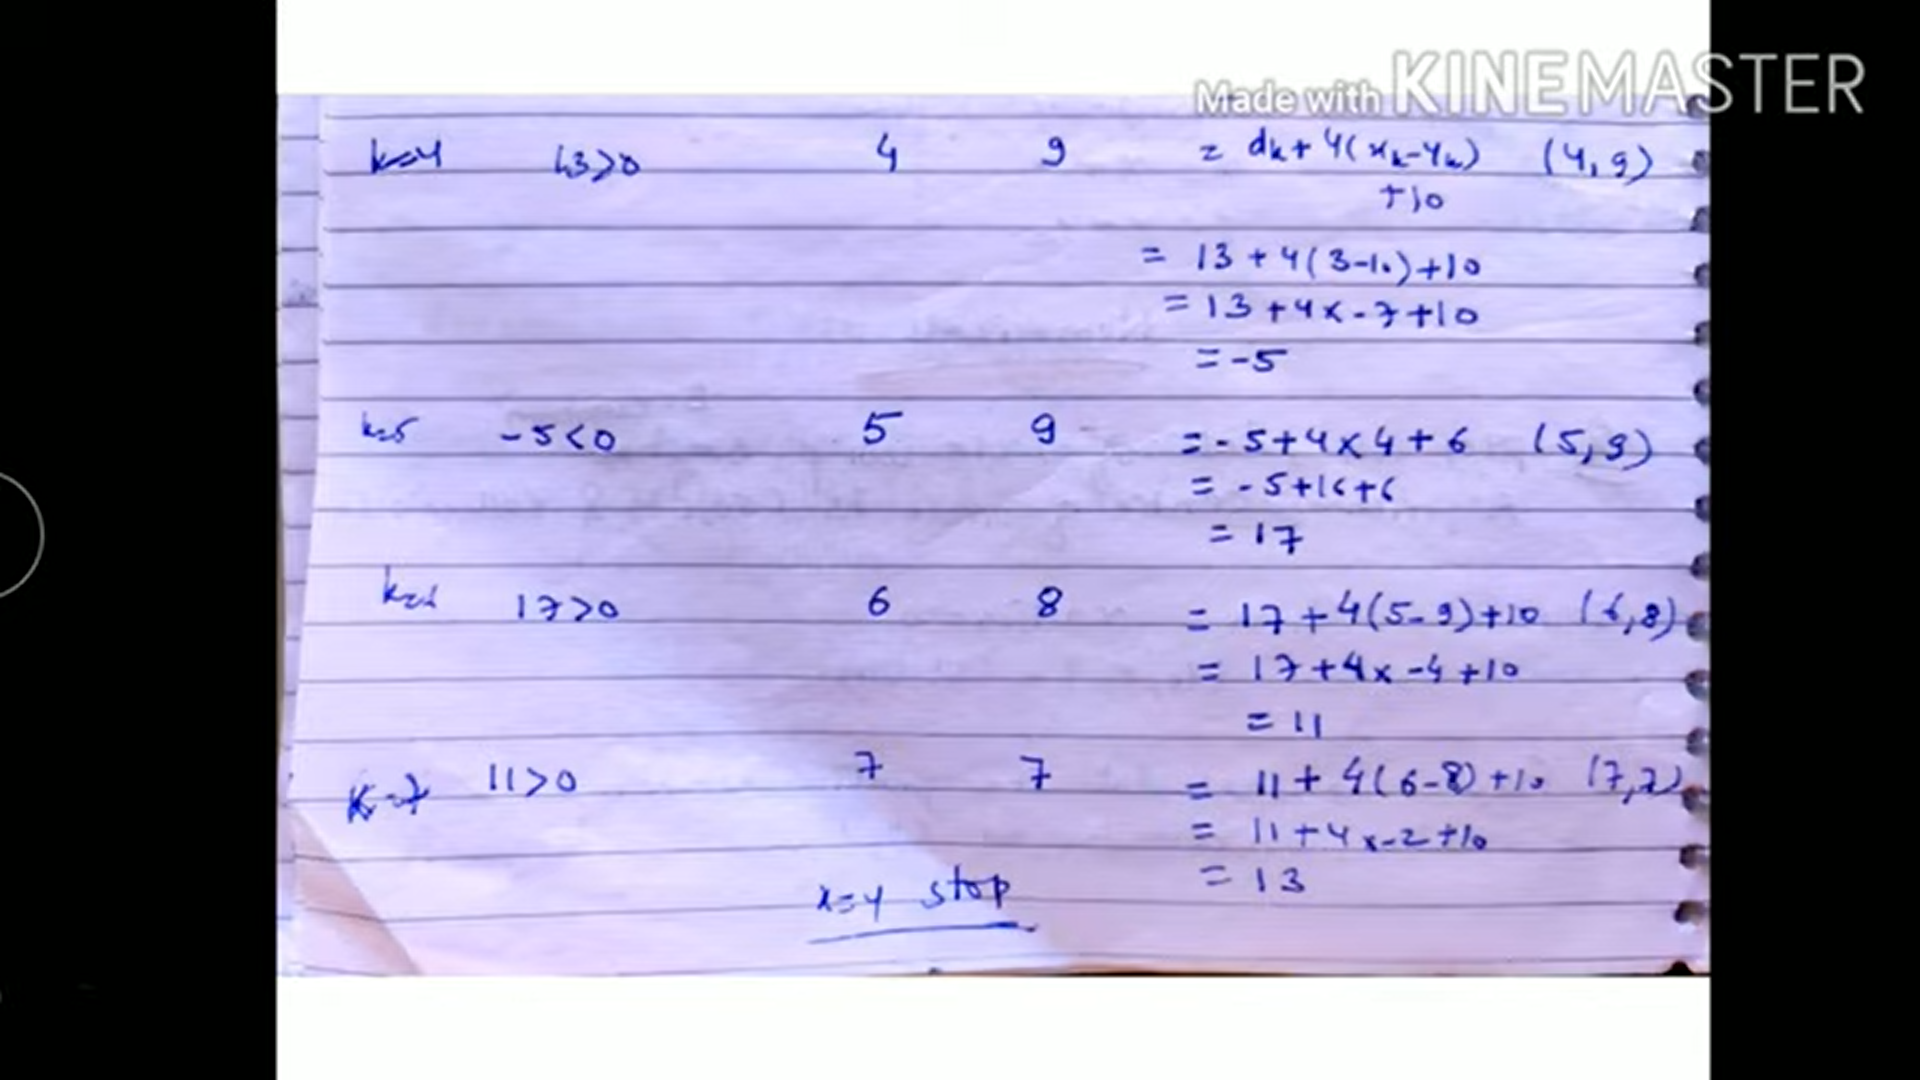 Made with KINEMASTER
k=4 13>0 4 9 = dk + 4(xk-yk) (4,9)
+10
= 13 + 4(3-10)+10
= 13 +4x-7+10
= -5
k=5 -5<0 5 9 = -5+4x4+6 (5,9)
= -5+16+6
= 17
k=6 17>0 6 8 = 17 + 4(5-9)+10 (6,8)
= 17+4x -4 +10
= 11
K=7 11>0 7 7 = 11 + 4(6-8) +10 (7,7)
= 11 +4x-2 +10
= 13
x=y stop